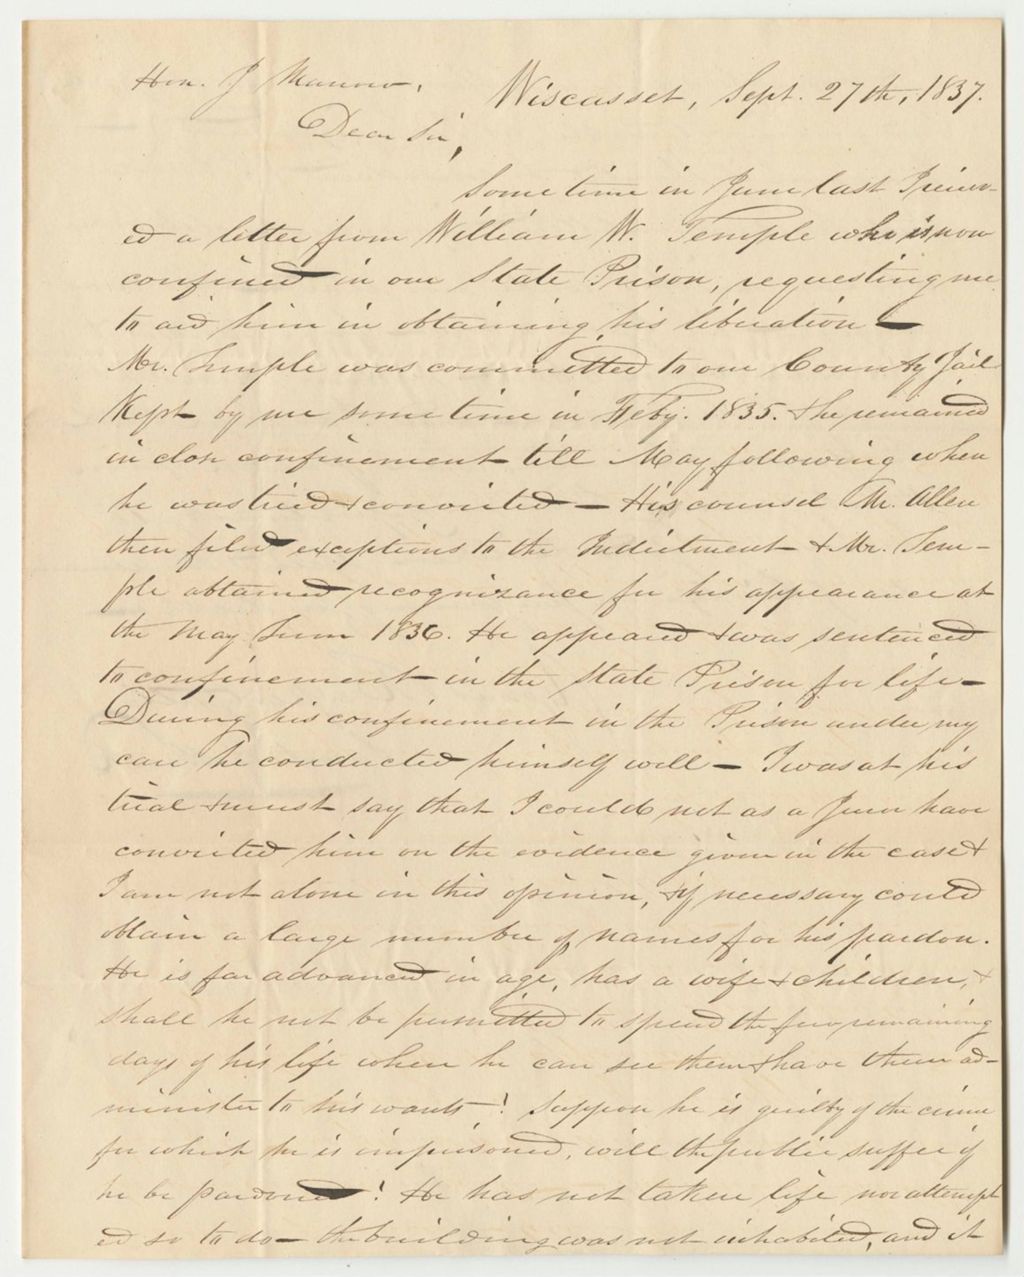 Hon. J Manow,
Wiscasset, Sept. 27th, 1837.
Dear Sir,
Some time in June last I receiv-
ed a letter from William W. Temple who is now
confined in our State Prison, requesting me
to aid him in obtaining his liberation —
Mr. Temple was committed to our County Jail
Kept by me some time in Feby. 1835. & he remained
in close confinement till May following when
he was tried & convicted — His counsel Mr. Allen
then filed exceptions to the Indictment & Mr. Tem-
ple obtained recognizance for his appearance at
the May Term 1836. He appeared & was sentenced
to confinement in the State Prison for life —
During his confinement in the Prison under my
care he conducted himself well — I was at his
trial & must say that I could not as a Juror have
convicted him on the evidence given in the case &
I am not alone in this opinion, & if necessary could
obtain a large number of names for his pardon.
He is far advanced in age, has a wife & children, &
shall he not be permitted to spend the few remaining
days of his life where he can see them & have them ad-
minister to his wants! Suppose he is guilty of the crime
for which he is imprisoned, will the public suffer if
he be pardoned! He has not taken life nor attempt
ed so to do — the building was not inhabited, and it